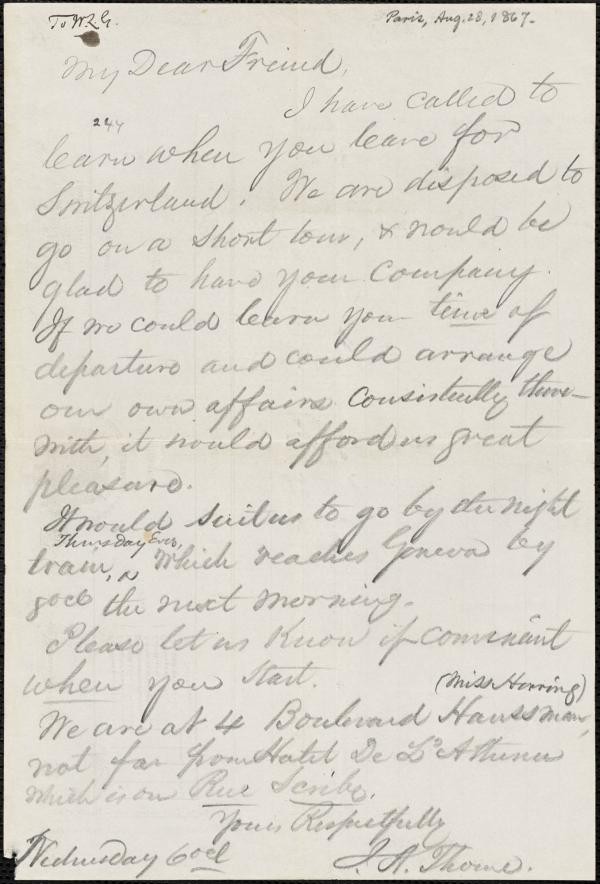 To W.L.G.
Paris, Aug. 28, 1867.
My Dear Friend,
I have called to
244
learn when you leave for
Switzerland. We are disposed to
go on a short tour, & would be
glad to have your Company.
If we could learn your time of
departure and could arrange
our own affairs consistently there-
with, it would afford us great
pleasure.
It would suit us to go by the night
Thursday Eve,
train, ^ which reaches Geneva by
9 ocl the next morning.
Please let us Know if convenient
when you start.
(Miss Herring)
We are at 4 Boulevard Haussman,
not far from Hotel De L'Athenee
which is on Rue Scribe.
Yours Respectfully
Wednesday 6 ocl
J. A. Thome.